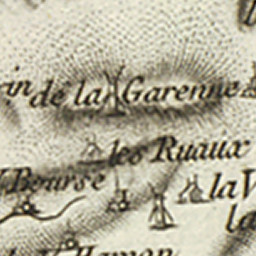 in de la Garenne
les Ruaux
Bourse
la V
la